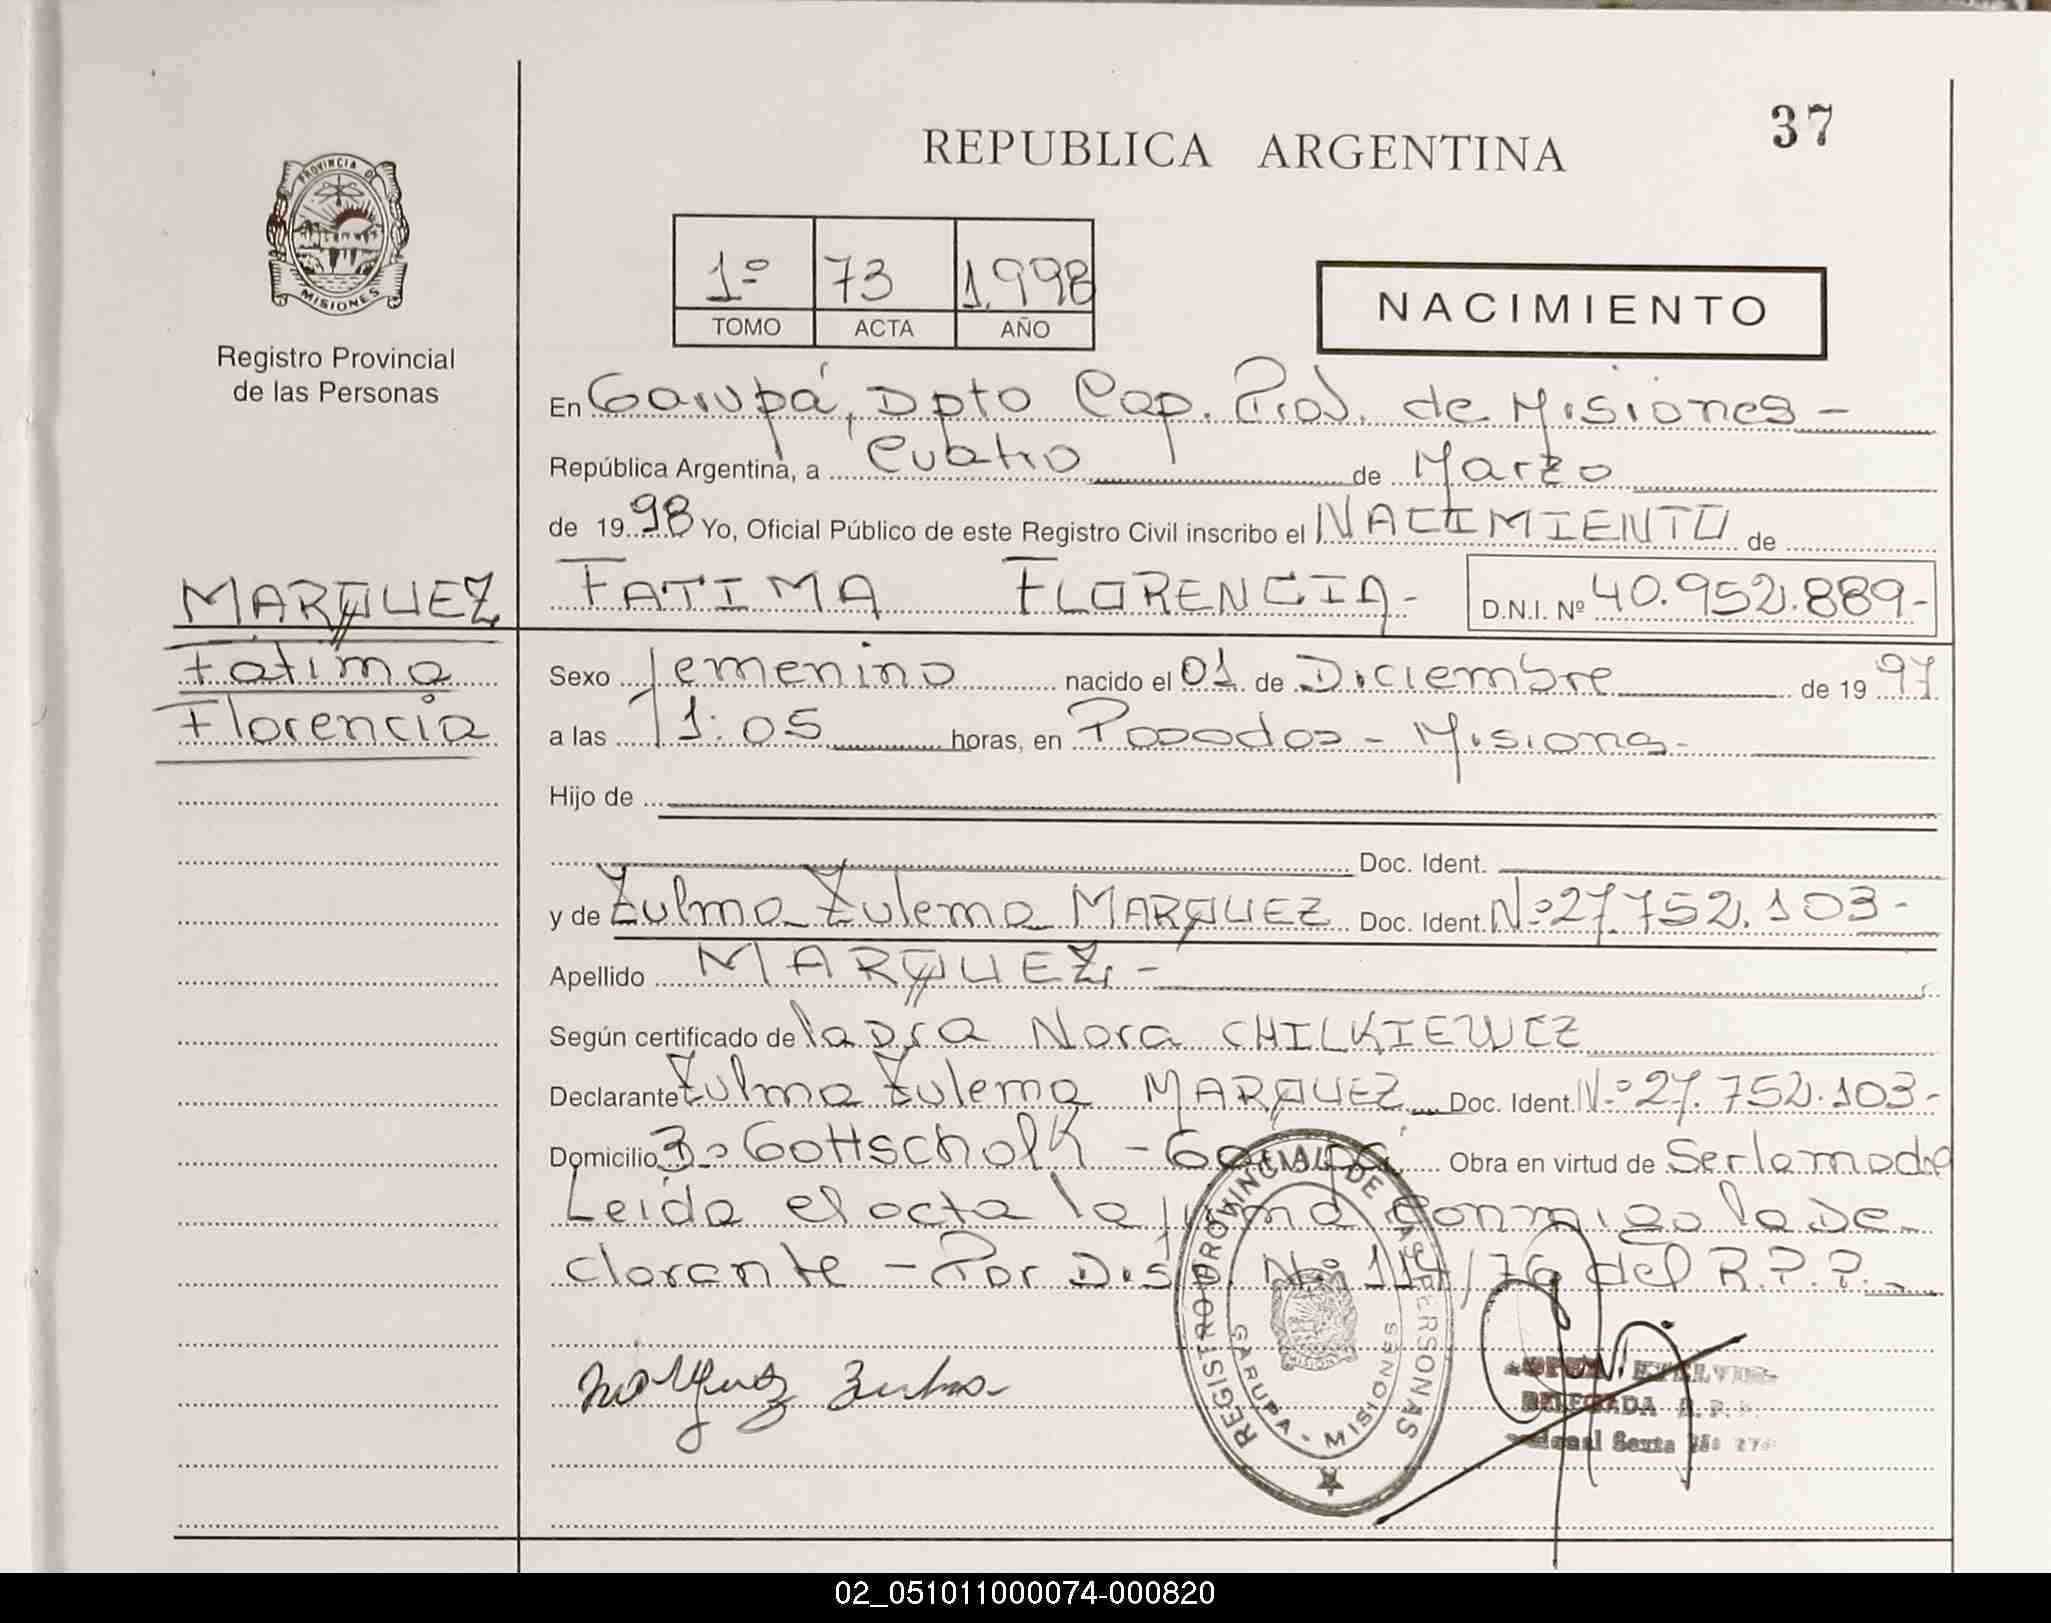 37
REPUBLICA ARGENTINA
PROVINCIA DE
MISIONES
Registro Provincial
de las Personas
1º 73 1.998
TOMO ACTA AÑO
NACIMIENTO
En Garupá, Dpto Cap. Prov. de Misiones -
República Argentina, a Cuatro de Marzo
de 19 98 Yo, Oficial Público de este Registro Civil inscribo el NACIMIENTO de
MARQUEZ
Fatima
Florencia
FATIMA FLORENCIA- D.N.I. Nº 40.952.889-
Sexo femenino nacido el 01 de Diciembre de 19 97
a las 11:05 horas, en Posadas - Misiones-
Hijo de
Doc. Ident.
y de Zulma Zulema MARQUEZ Doc. Ident. Nº 27.752.103-
Apellido MARQUEZ -
Según certificado de la Dra Nora CHILKIEWCZ
Declarante Zulma Zulema MARQUEZ Doc. Ident. Nº 27.752.103-
Domicilio Bº Gottschalk - Garupá Obra en virtud de Ser la madre
Leida el acta la firma conmigo la De-
clarante - Por Disp. Nº 114/76 del R.P.P.
Marquez Zulma
REGISTRO PROVINCIAL DE LAS PERSONAS
GARUPA - MISIONES
DELEGADA R.P.
Sexta
02_051011000074-000820